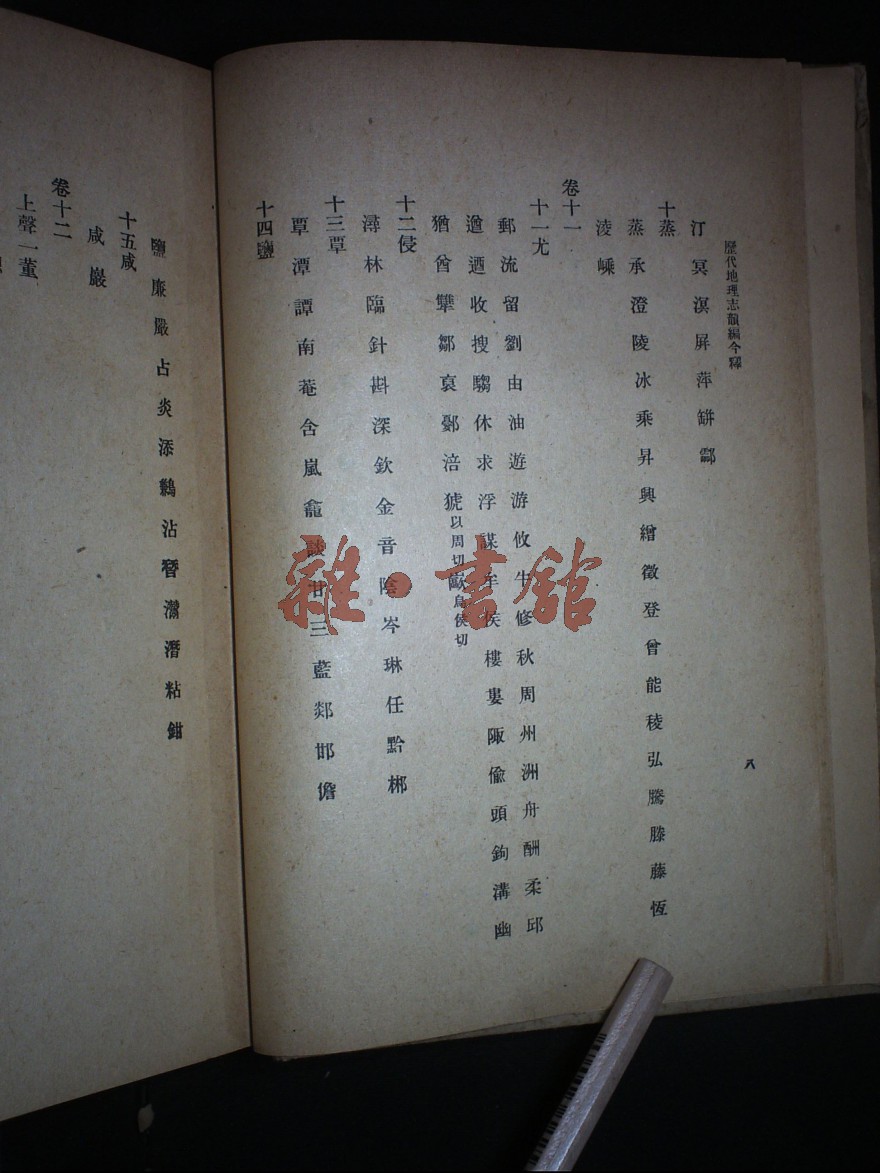 歷代地理志韻編今釋
八
汀冥溟屏萍缾酃
十蒸
蒸承澄陵冰乘昇興繒徵登曾能稜弘騰滕藤恆
淩嵊
卷十一
十一尤
郵流留劉由油遊游攸牛修秋周州洲舟酬柔邱
遒迺收搜騶休求浮謀牟侯樓婁陬偷頭鉤溝幽
猶酋犨鄒裒鄾涪猇以周切歐烏侯切
十二侵
潯林臨針斟深欽金音陰岑琳任黔郴
十三覃
覃潭譚南菴含嵐龕談甘三藍郯邯儋
十四鹽
鹽廉嚴占炎添鶼沾暜灊潛粘鉗
十五咸
咸巖
卷十二
上聲一董
雜·書館